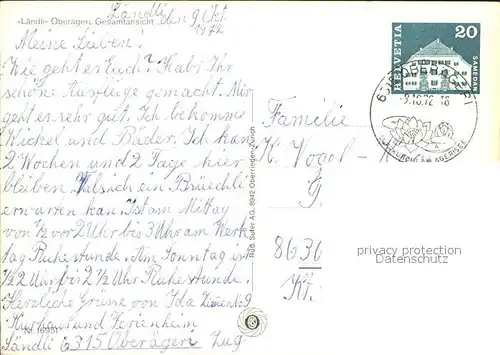 «Ländli» Oberägeri, Gesamtansicht
Ländli den 9 Okt.
1972
Meine Lieben!
Wie geht es Euch? Habt Ihr
schöne Ausflüge gemacht. Mir
geht es sehr gut. Ich bekomme
Wickel und Bäder. Ich kan
2 Wochen und 2 Tage hier
bleiben. Falsich ein Brüechli
kan. Ist am Mittag
von ½ vor 2 Uhr bis 3 Uhr am Werk
tag Ruhestunde. Am Sonntag ist
½ 2 Uhr bis 2 ½ Uhr Ruhestunde.
Herzliche Grüsse von Ida Zimer No 9
Kurhaus und Ferienheim
Ländli 6315 Oberägeri Zug
Rüd. Suter AG, 8942 Oberrieden-Zürich
HELVETIA
20
SAMEDAN
-9.10.72-18
ÄGERISEE
Familie
K. Vogel-
8636
privacy protection
by AnsichtskartenVersand.com